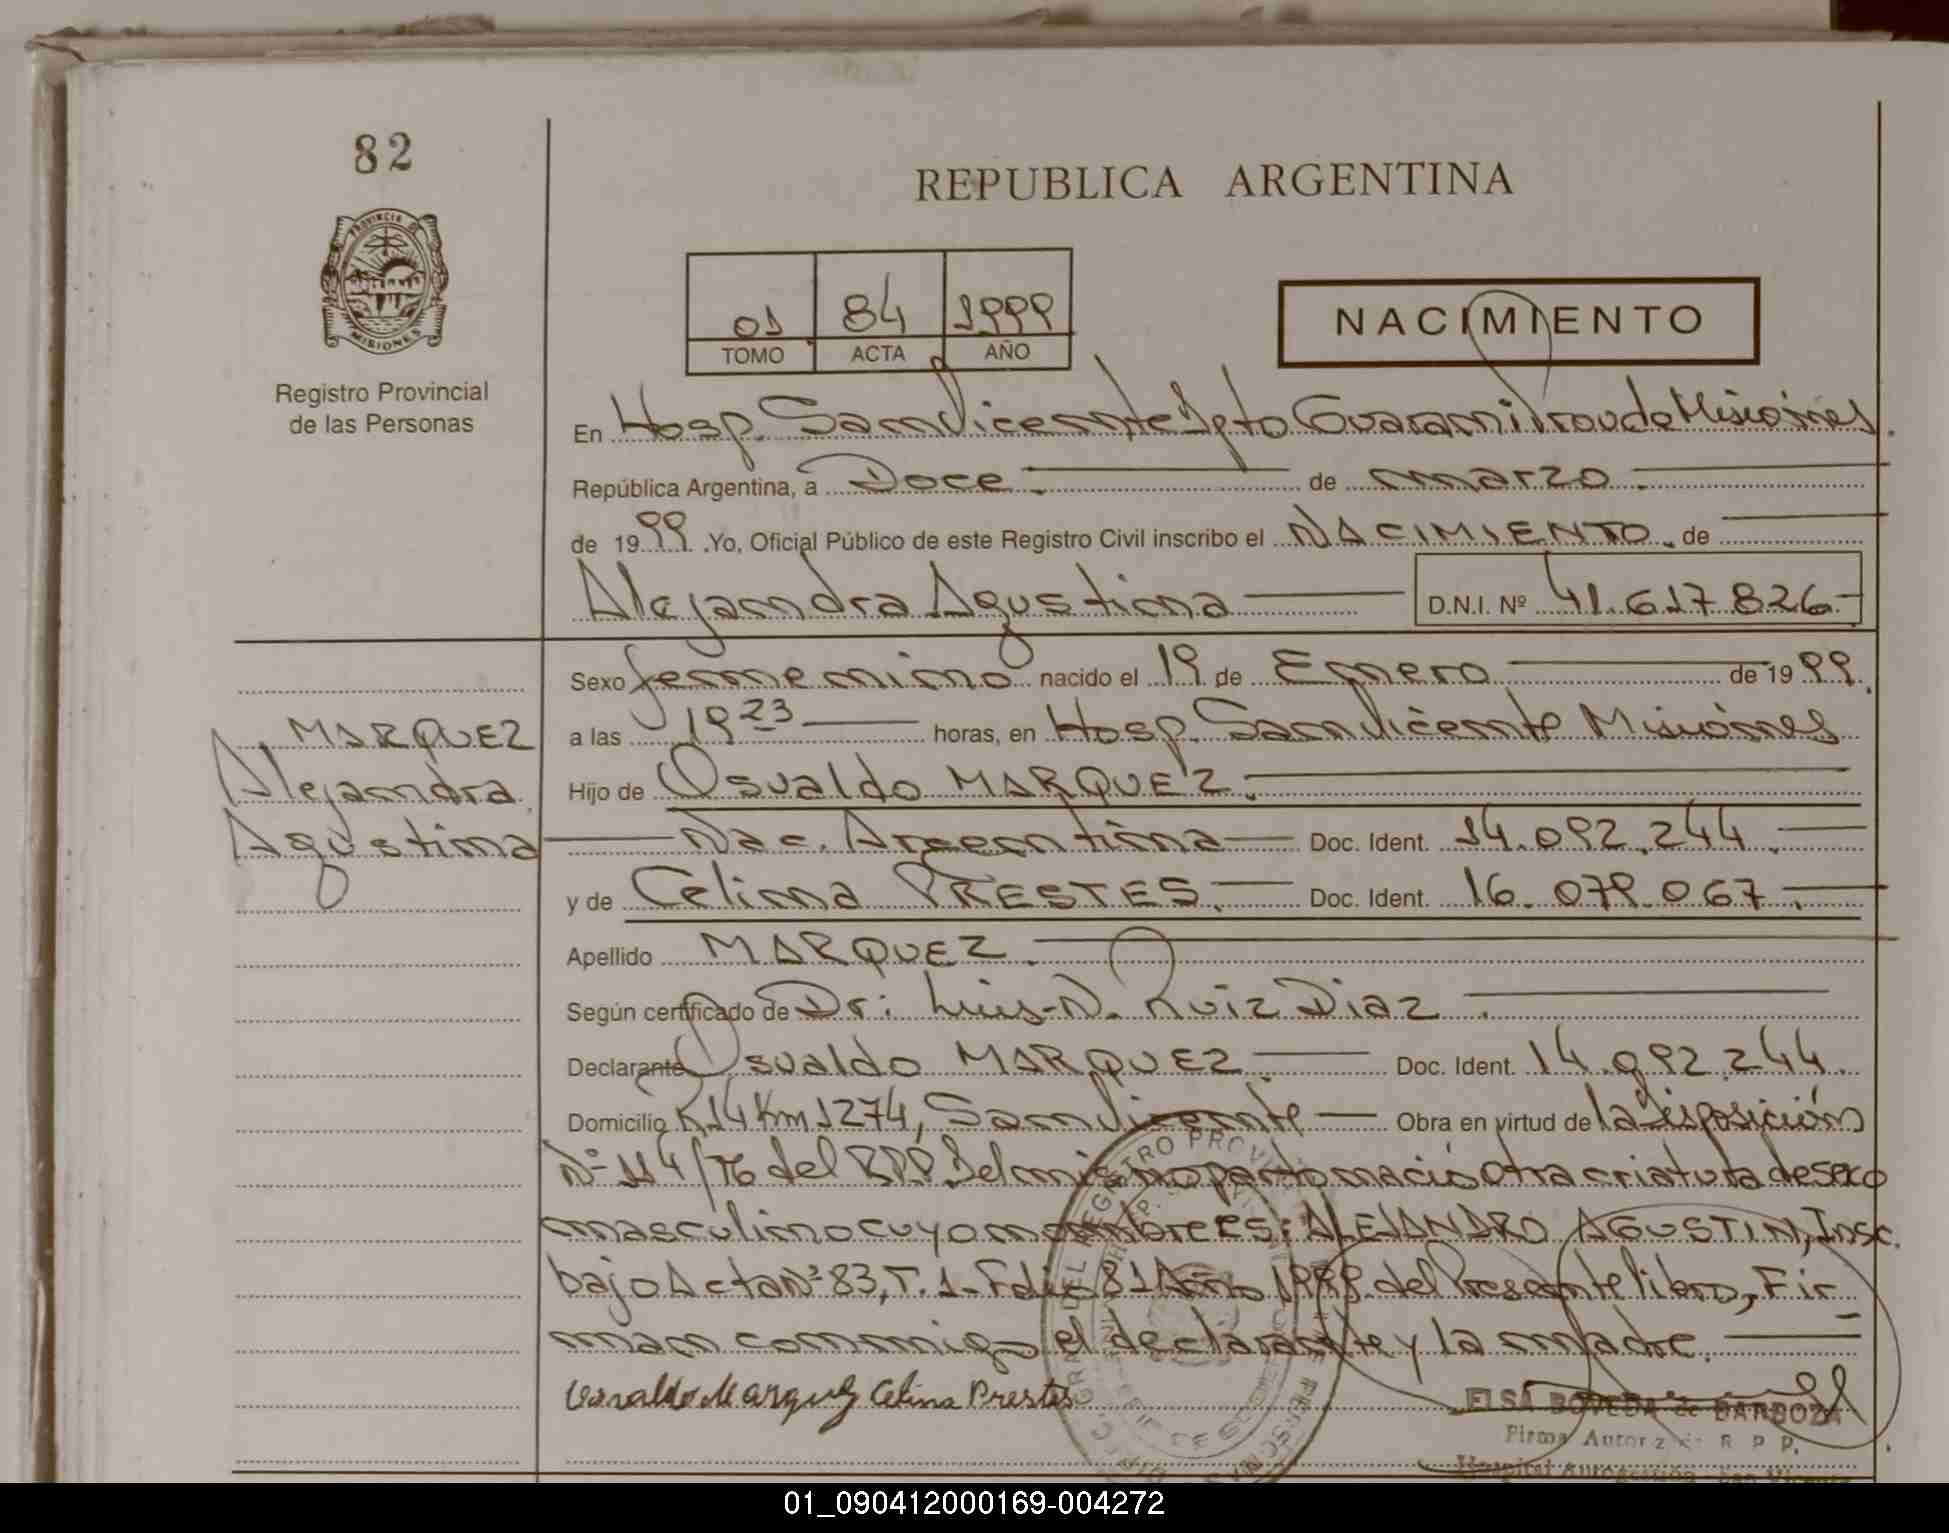 82
PROVINCIA DE
MISIONES
Registro Provincial
de las Personas
REPUBLICA ARGENTINA
01 84 1999
TOMO ACTA AÑO
NACIMIENTO
En Hosp. San Vicente Dpto Guarani Prov de Misiones.
República Argentina, a Doce. de marzo.
de 1999. Yo, Oficial Público de este Registro Civil inscribo el NACIMIENTO. de
Alejandra Agustina D.N.I. Nº 41.617.826
Sexo femenino nacido el 19 de Enero de 1999.
a las 19 23 horas, en Hosp. San Vicente Misiones
Hijo de Osvaldo MARQUEZ.
Nac. Argentina Doc. Ident. 14.092.244.
y de Celina PRESTES. Doc. Ident. 16.079.067.
Apellido MARQUEZ.
Según certificado de Dr: Luis N. Ruiz Diaz.
Declarante Osvaldo MARQUEZ. Doc. Ident. 14.092.244.
Domicilio R14 Km 1274, San Vicente Obra en virtud de la Disposición
Nº 114/76 del RPP. Del mismo parto nació otra criatura de sexo
masculino cuyo nombre es: ALEJANDRO AGUSTIN, Insc.
bajo Acta Nº 83, T. 1- Folio 81 Año 1999 del Presente libro, Fir
man conmigo el declarante y la madre.
MARQUEZ
Alejandra
Agustina
Osvaldo Marquez Celina Prestes
ELSA BOVEDA de BARBOZA
Firma Autoriz R P P.
Hospital Autogestión San Vicente
01_090412000169-004272